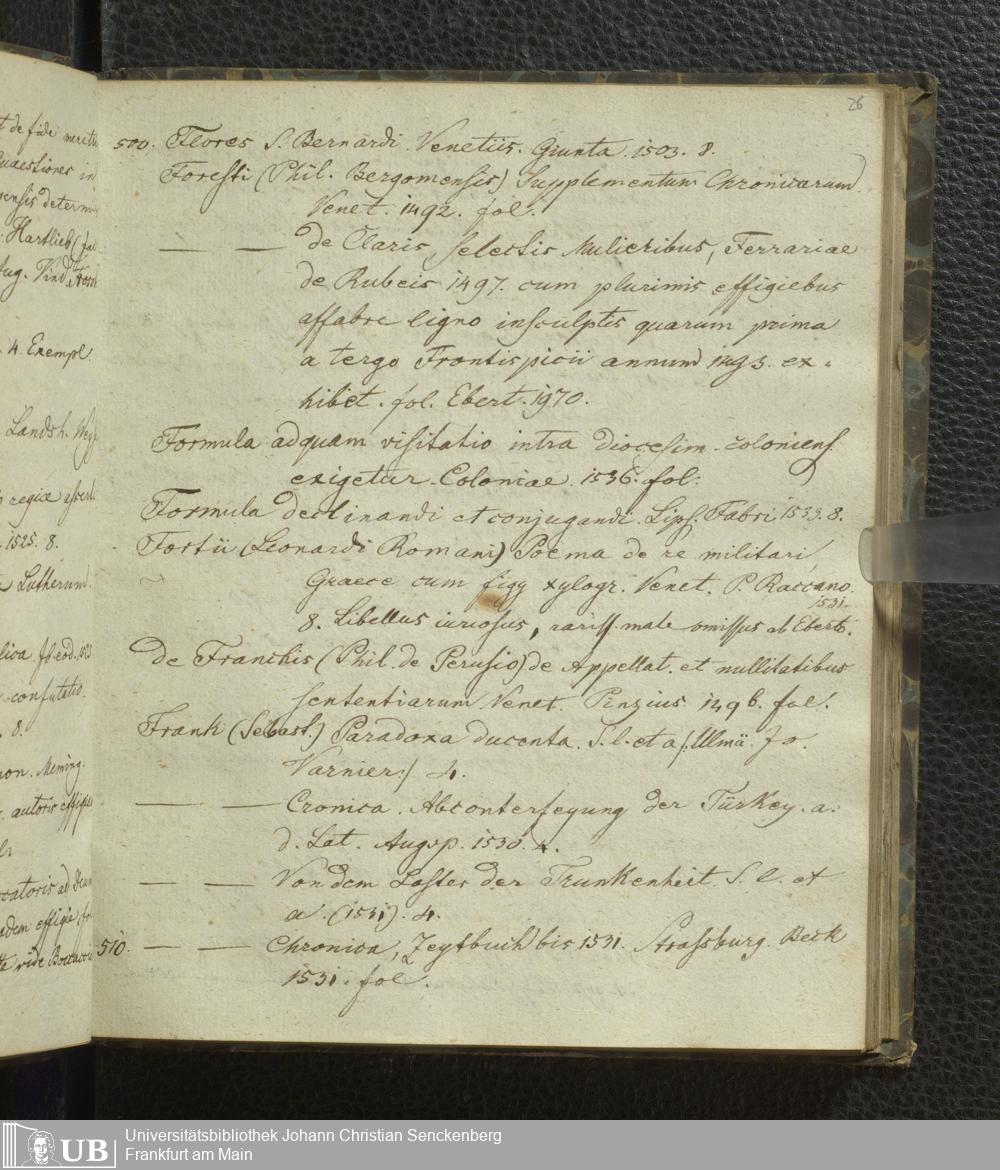 26
500. Flores S. Bernardi. Venetiis. Giunta. 1503. 8.
Foresti (Phil. Bergomensis) Supplementum Chronicarum
Venet. 1492. fol.
— — de Claris selectis Mulieribus, Ferrariae
de Rubeis 1497. cum plurimis effigiebus
affabre ligno insculptis quarum prima
a tergo Frontispicii annum 1493. ex-
hibet. fol. Ebert. 1970.
Formula ad quam visitatio intra Diocesim coloniens.
exigetur. Coloniae. 1536. fol:
Formula declinandi et conjugandi. Lips. Fabri. 1533. 8.
Fortii (Leonardi Romani) Poema de re militari,
Graece cum figg xylogr. Venet. P. Raccano.
1531.
8. Libellus curiosus, rariss. male omissus ab Eberto.
De Franchis (Phil. de Perusio) de Appellat. et nullitatibus
sententiarum Venet. Penzius 1496. fol.
Frank (Sebast.) Paradoxa ducenta. S. l. et a /: Ulmä. Jo.
Varnier:/ 4.
— — Cronica. Abconterfeyung der Türkey. a.
d. Lat. Augsp. 1530. 4.
— — Von dem Laster der Trunkenheit. S. l. et
a. (1531). 4.
510. — — Chronica, Zeytbuch bis 1531. Strassburg. Beck
1531. fol.
t de fide
quaestiones in
. Hartlieb
Aug. Vind.
. 4. Exempl.
Landsh.
regiae
. 1525. 8.
Lutherum.
confutatio.
. 8.
. Meming.
autoris effigie
effigie
vide
UB
Universitätsbibliothek Johann Christian Senckenberg
Frankfurt am Main